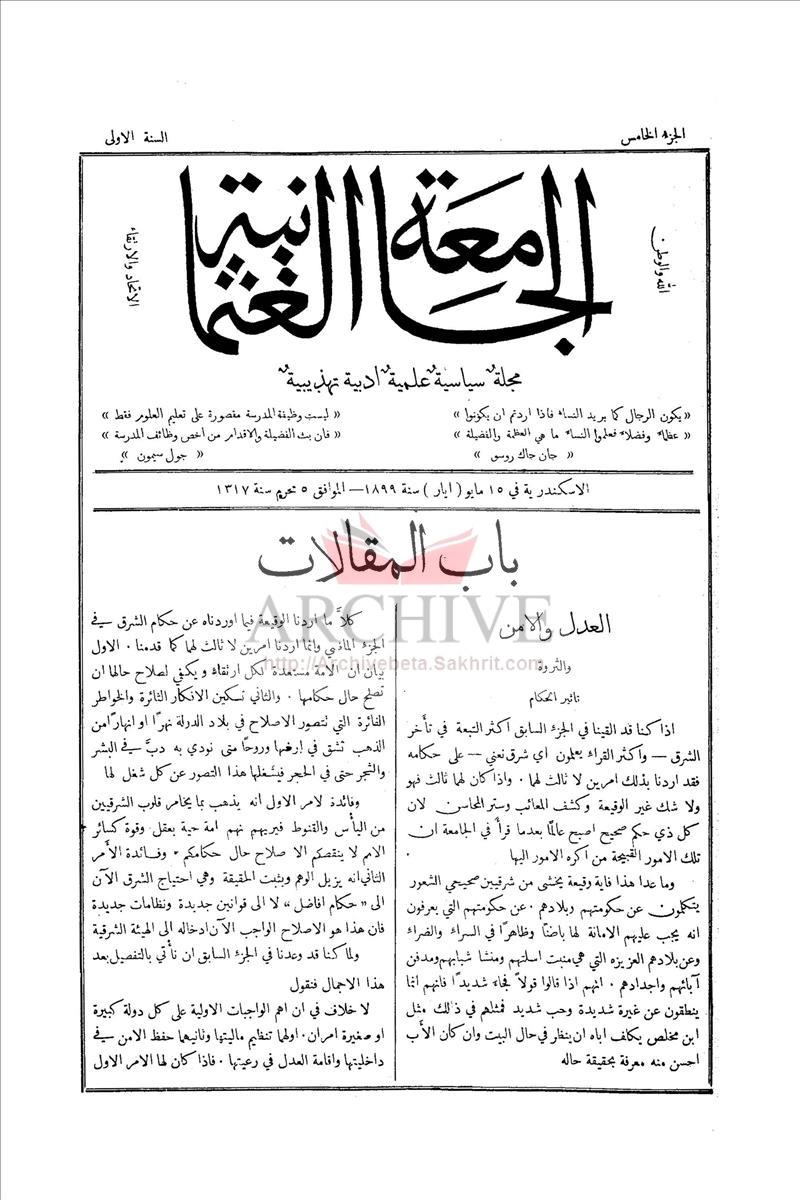 الجزء الخامس
السنة الاولى
الجامعة العثمانية
الله والوطن
الاتحاد والارتقاء
مجلة سياسية علمية ادبية تهذيبية
« يكون الرجال كما يريد النساء فاذا اردتم ان يكونوا »
« عظماء وفضلاء فعلموا النساء ما هي العظمة والفضيلة »
« جان جاك روسو »
« ليست وظيفة المدرسة مقصورة على تعليم العلوم فقط »
« فان بث الفضيلة والاقدام من أخص وظائف المدرسة »
« جول سيمون »
الاسكندرية في ١٥ مايو ( ايار ) سنة ١٨٩٩ — الموافق ٥ محرم سنة ١٣١٧
باب المقالات
ARCHIVE
http://Archivebeta.Sakhrit.com
العدل والامن
والثروة
تاثير الحكام
اذا كنا قد القينا في الجزء السابق اكثر التبعة في تأخر
الشرق — واكثر القراء يعلمون اي شرق نعني — على حكامه
فقد اردنا بذلك امرين لا ثالث لهما ٠ واذا كان لهما ثالث فهو
ولا شك غير الوقيعة وكشف المعائب وستر المحاسن لان
كل ذي حكم صحيح اصبح عالمًا بعدما قرأ في الجامعة ان
تلك الامور القبيحة من اكره الامور اليها
وما عدا هذا فاية وقيعة يخشى من شرقيين صحيحي الشعور
يتكلمون عن حكومتهم وبلادهم ٠ عن حكومتهم التي يعرفون
انه يجب عليهم الامانة لها باضنًا وظاهرًا في السراء والضراء
وعن بلادهم العزيزه التي هي منبت اسلتهم ومنشا شبابهم ومدفن
آبائهم واجدادهم ٠ انهم اذا قالوا قولاً فجاء شديدًا فانهم انما
ينطقون عن غيرة شديدة وحب شديد فمثلهم في ذلك مثل
ابن مخلص يكلف اباه ان ينظر في حال البيت وان كان الأب
احسن منه معرفة بحقيقة حاله
كلاَّ ما اردنا الوقيعة فيما اوردناه عن حكام الشرق في
الجزء الماضي وانما اردنا امرين لا ثالث لهما كما قدمنا ٠ الاول
بيان ان الامة مستعدة لكل ارتقاء ويكفي لصلاح حالها ان
تصلح حال حكامها ٠ والثاني تسكين الافكار الثائرة والخواطر
الفائرة التي تتصور الاصلاح في بلاد الدولة نهرًا او انهارًا من
الذهب تشق في ارضها وروحًا متى نودي به دبَّ في البشر
والشجر حتى في الحجر فيشغلها هذا التصور عن كل شغل لها
وفائدة الامر الاول انه يذهب بما يخامر قلوب الشرقيين
من اليأس والقنوط فيريهم انهم امة حية بعقل وقوة كسائر
الامم لا ينقصكم الا صلاح حال حكامكم ٠ وفائدة الأمر
الثاني انه يزيل الوهم ويثبت الحقيقة وهي احتياج الشرق الآن
الى « حكام افاضل » لا الى قوانين جديدة ونظامات جديدة
فان هذا هو الاصلاح الواجب الآن ادخاله الى الهيئة الشرقية
ولما كنا قد وعدنا في الجزء السابق ان نأتي بالتفصيل بعد
هذا الاجمال فنقول
لا خلاف في ان اهم الواجبات الاولية على كل دولة كبيرة
او صغيرة امران ٠ اولهما تنظيم ماليتها وثانيهما حفظ الامن في
داخليتها واقامة العدل في رعيتها ٠ فاذا كان لها الامر الاول